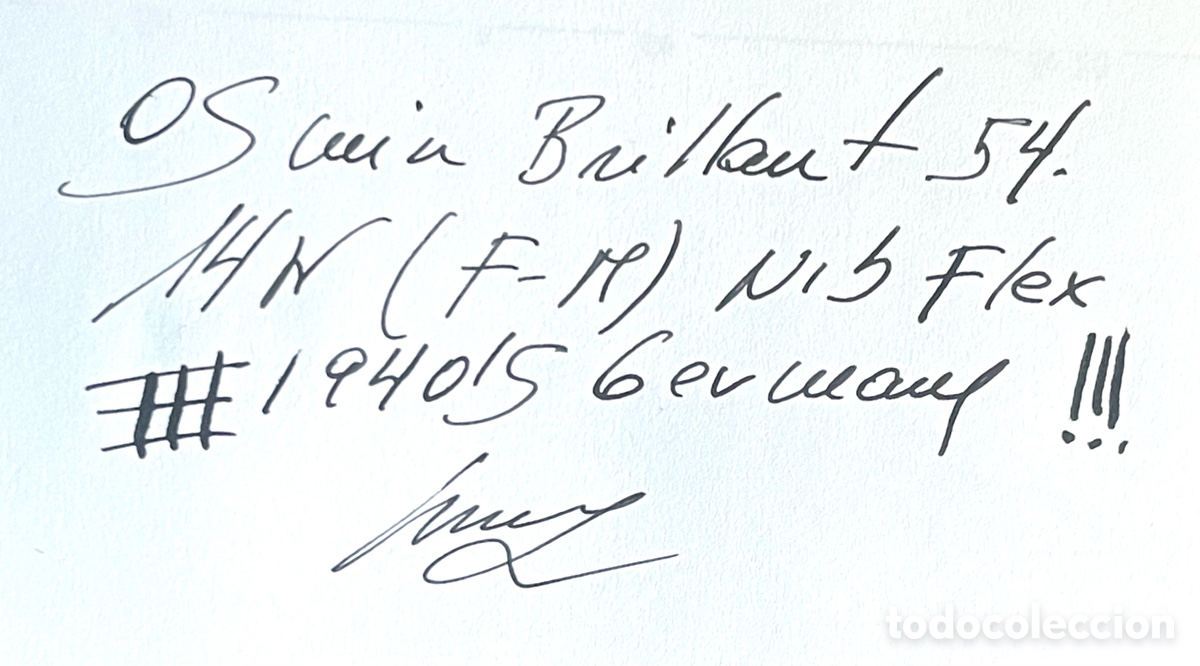 OSmia Brillant 54.
14K (F-M) Nib Flex
1940's Germany !!!
todocoleccion